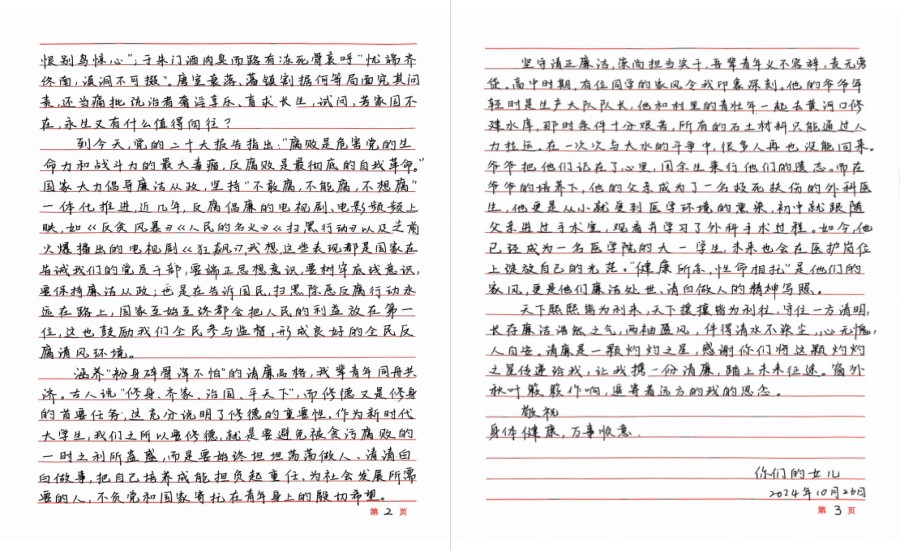 恨别鸟惊心”；于朱门酒肉臭而路有冻死骨哀呼“忧端齐
终南，澒洞不可掇”。唐室衰落，藩镇割据何等局面究其问
责，还当痛批统治者奢淫享乐、盲求长生，试问，若家国不
在，永生又有什么值得向往？
到今天，党的二十大报告指出：“腐败是危害党的生
命力和战斗力的最大毒瘤，反腐败是最彻底的自我革命。”
国家大力倡导廉洁从政，坚持“不敢腐，不能腐，不想腐”
一体化推进，近几年，反腐倡廉的电视剧、电影频频上
映，如《反贪风暴》《人民的名义》《扫黑行动》以及之前
火爆播出的电视剧《狂飙》，我想这些表现都是国家在
告诫我们的党员干部，要端正思想意识，要树牢底线意识，
要保持廉洁从政；也是在告诉国民，扫黑除恶反腐行动永
远在路上，国家至始至终都会把人民的利益放在第一
位，这也鼓励我们全民参与监督，形成良好的全民反
腐清风环境。
涵养“粉身碎骨浑不怕”的清廉品格，我辈青年同舟共
济。古人说“修身、齐家、治国、平天下”，而修德又是修身
的首要任务，这充分说明了修德的重要性，作为新时代
大学生，我们之所以要修德，就是要避免被贪污腐败的
一时之利所蛊惑，而是要始终坦坦荡荡做人、清清白
白做事，把自己培养成能担负起重任，为社会发展所需
要的人，不负党和国家寄托在青年身上的殷切希望。
第 2 页
坚守清正廉洁，深向担当实干，吾辈青年义不容辞，责无旁
贷。高中时期，有位同学的家风令我印象深刻。他的爷爷年
轻时是生产大队队长，他和村里的青壮年一起去黄河口修
建水库，那时条件十分艰苦，所有的石土材料只能通过人
力拉运。在一次次与大水的斗争中，很多人再也没能回来。
爷爷把他们记在了心里，用余生来行他们的遗志。而在
爷爷的培养下，他的父亲成为了一名救死扶伤的外科医
生，他更是从小就受到医学环境的熏染，初中就跟随
父亲进过手术室，观看并学习了外科手术过程。如今，他
已经成为一名医学院的大一学生，未来也会在医护岗位
上绽放自己的光芒。“健康所系，性命相托”是他们的
家风，更是他们廉洁处世、清白做人的精神写照。
天下熙熙皆为利来，天下攘攘皆为利往，守住一方清明，
长存廉洁浩然之气，两袖盈风，伴得清水不染尘，心无愧，
人自安。清廉是一颗灼灼之星，感谢你们将这颗灼灼
之星传递给我，让我携一份清廉，踏上未来征途。窗外
秋叶簌簌作响，遥寄着远方的我的思念。
敬祝
身体健康，万事顺意.
你们的女儿
2024年10月26日
第 3 页